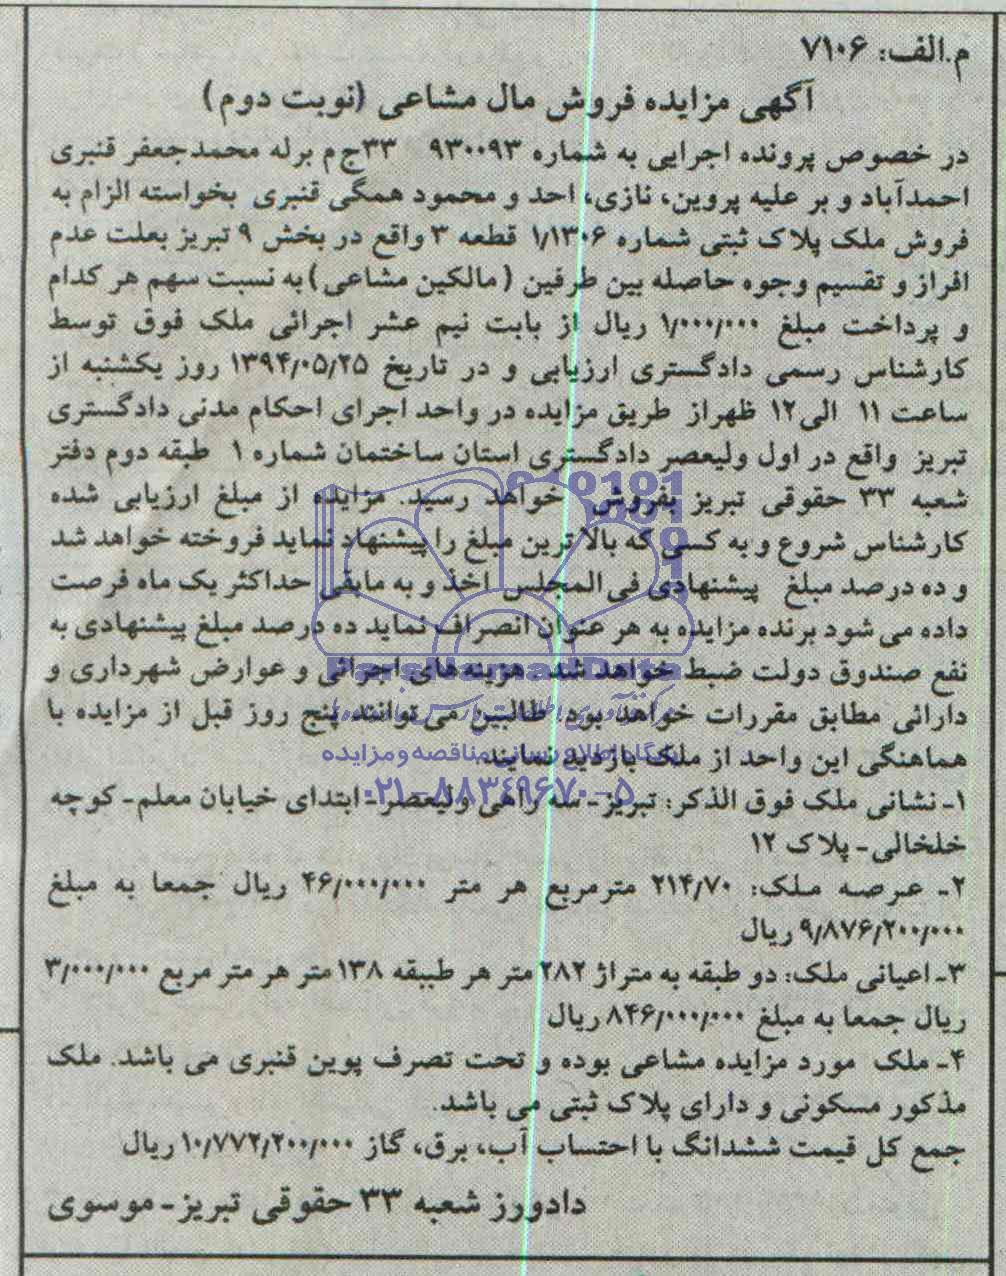 م.الف: ۷۱۰۶
آگهی مزایده فروش مال مشاعی (نوبت دوم)
در خصوص پرونده اجرایی به شماره ۹۳۰۰۹۳ ۳۳ج م برله محمدجعفر قنبری
احمدآباد و بر علیه پروین، نازی، احد و محمود همگی قنبری بخواسته الزام به
فروش ملک پلاک ثبتی شماره ۱/۱۳۰۶ قطعه ۳ واقع در بخش ۹ تبریز بعلت عدم
افراز و تقسیم وجوه حاصله بین طرفین (مالکین مشاعی) به نسبت سهم هر کدام
و پرداخت مبلغ ۱/۰۰۰/۰۰۰ ریال از بابت نیم عشر اجرائی ملک فوق توسط
کارشناس رسمی دادگستری ارزیابی و در تاریخ ۱۳۹۴/۰۵/۲۵ روز یکشنبه از
ساعت ۱۱ الی۱۲ ظهراز طریق مزایده در واحد اجرای احکام مدنی دادگستری
تبریز واقع در اول ولیعصر دادگستری استان ساختمان شماره ۱ طبقه دوم دفتر
شعبه ۳۳ حقوقی تبریز بفروش خواهد رسید. مزایده از مبلغ ارزیابی شده
کارشناس شروع و به کسی که بالاترین مبلغ را پیشنهاد نماید فروخته خواهد شد
و ده درصد مبلغ پیشنهادی فی المجلس اخذ و به مابقی حداکثر یک ماه فرصت
داده می شود برنده مزایده به هر عنوان انصراف نماید ده درصد مبلغ پیشنهادی به
نفع صندوق دولت ضبط خواهد شد. هزینه‌های اجرائی و عوارض شهرداری و
دارائی مطابق مقررات خواهد بود. طالبین می‌توانند پنج روز قبل از مزایده با
هماهنگی این واحد از ملک بازدید نمایند.
۱ـ نشانی ملک فوق الذکر: تبریز ـ سه راهی ولیعصر ـ ابتدای خیابان معلم ـ کوچه
خلخالی ـ پلاک ۱۲
۲ـ عرصه ملک: ۲۱۴/۷۰ مترمربع هر متر ۴۶/۰۰۰/۰۰۰ ریال جمعا به مبلغ
۹/۸۷۶/۲۰۰/۰۰۰ ریال
۳ـ اعیانی ملک: دو طبقه به متراژ ۲۸۲ متر هر طبیقه ۱۳۸ متر هر متر مربع ۳/۰۰۰/۰۰۰
ریال جمعا به مبلغ ۸۴۶/۰۰۰/۰۰۰ ریال
۴ـ ملک مورد مزایده مشاعی بوده و تحت تصرف پوین قنبری می باشد. ملک
مذکور مسکونی و دارای پلاک ثبتی می باشد.
جمع کل قیمت ششدانگ با احتساب آب، برق، گاز ۱۰/۷۷۲/۲۰۰/۰۰۰ ریال
دادورز شعبه ۳۳ حقوقی تبریز ـ موسوی
ParsNamadData
پایگاه اطلاع رسانی مناقصه و مزایده
۰۲۱-۸۸۳۴۹۶۷۰-۵